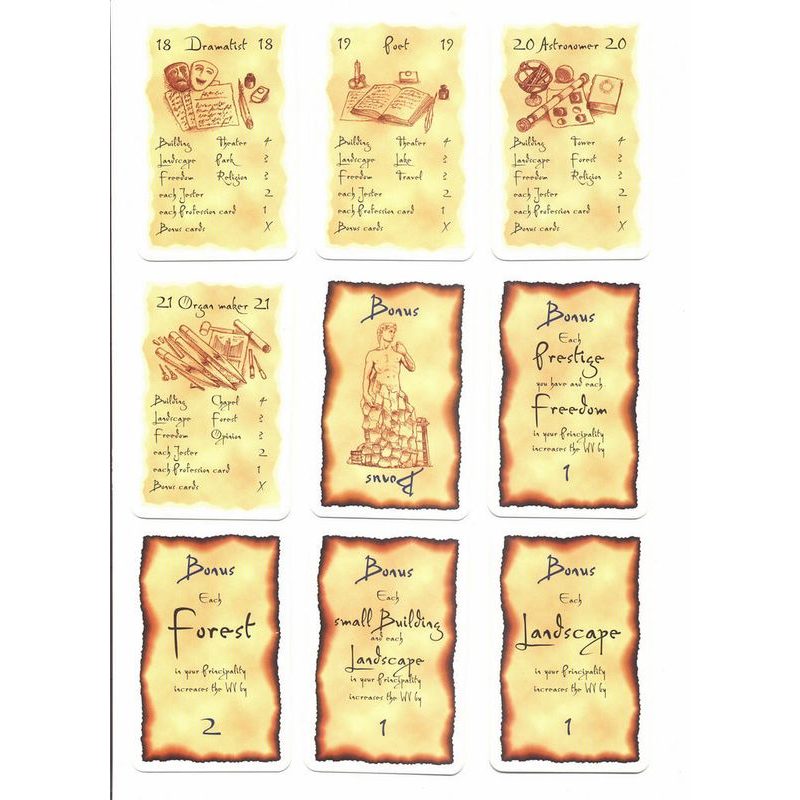 18 Dramatist 18
Building Theater 4
Landscape Park 3
Freedom Religion 3
each Jester 2
each Profession card 1
Bonus cards X
19 Poet 19
Building Theater 4
Landscape Lake 3
Freedom Travel 3
each Jester 2
each Profession card 1
Bonus cards X
20 Astronomer 20
Building Tower 4
Landscape Forest 3
Freedom Religion 3
each Jester 2
each Profession card 1
Bonus cards X
21 Organ maker 21
Building Chapel 4
Landscape Forest 3
Freedom Opinion 3
each Jester 2
each Profession card 1
Bonus cards X
Bonus
Bonus
Bonus
Each
Prestige
you have and each
Freedom
in your Principality
increases the WV by
1
Bonus
Each
Forest
in your Principality
increases the WV by
2
Bonus
Each
small Building
and each
Landscape
in your Principality
increases the WV by
1
Bonus
Each
Landscape
in your Principality
increases the WV by
1